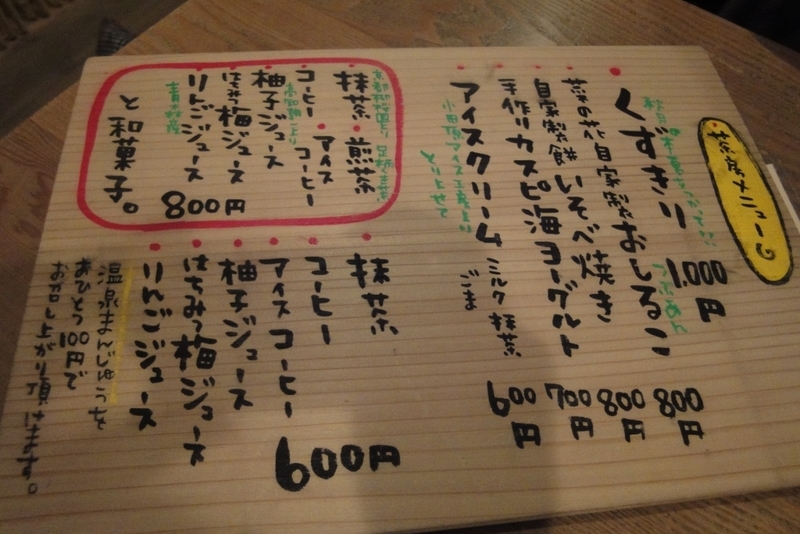 茶房メニュー
くずきり 1,000円
つめたい
菜の花自家製おしるこ 800円
自家製餅いそべ焼き 800円
手作りカスピ海ヨーグルト 700円
アイスクリーム ミルク 抹茶 ごま 600円
小田原アイス工房より
とりよせて
抹茶・煎茶
コーヒー・アイスコーヒー
柚子ジュース
はちみつ梅ジュース
りんごジュース
青森産
と和菓子。 800円
抹茶
コーヒー
アイスコーヒー
柚子ジュース
はちみつ梅ジュース
りんごジュース
600円
温泉まんじゅうを
おひとつ100円で
お召し上がり頂けます。